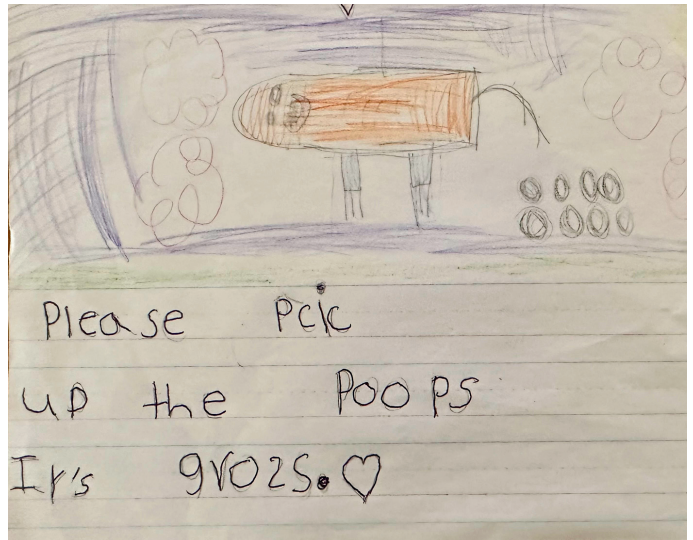 Please pcik
up the Poops
It's grozs.♡